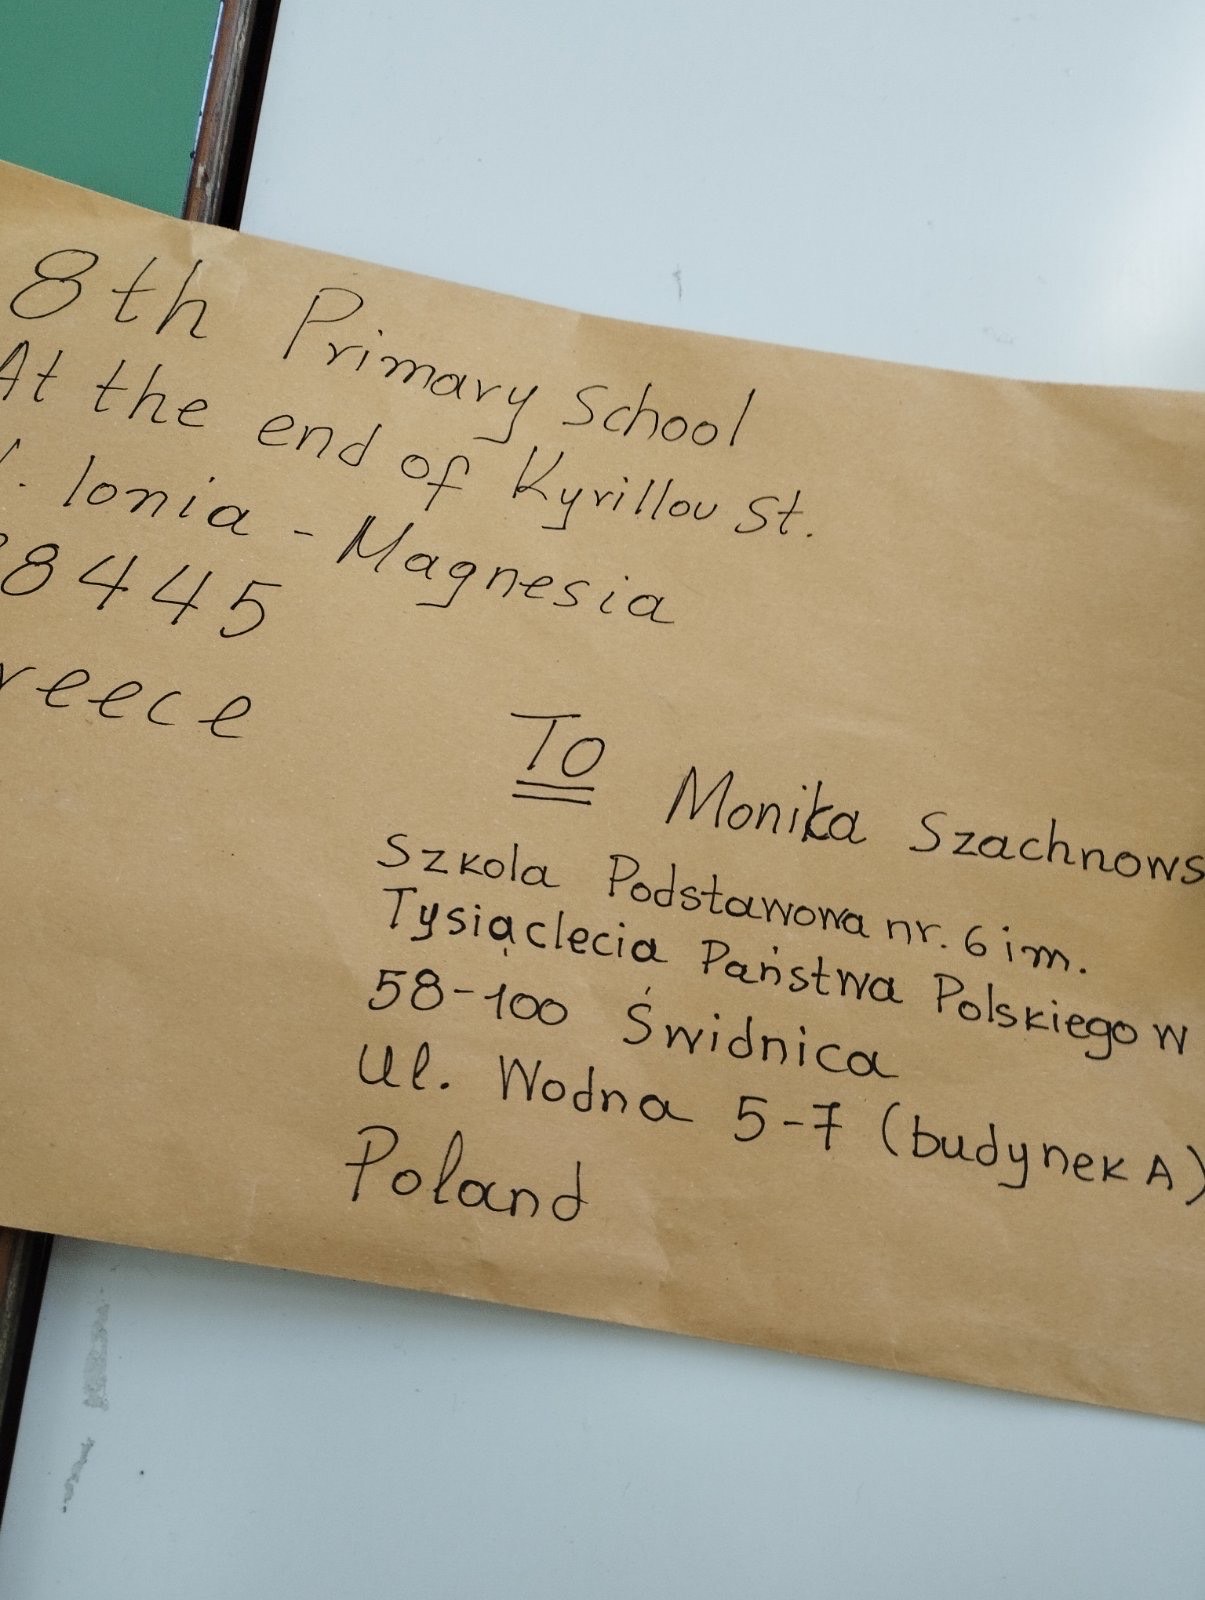 8th Primary School
At the end of Kyrillou St.
. Ionia - Magnesia
8445
reece
TO Monika Szachnows
Szkola Podstawowa nr. 6 im.
Tysiąclecia Państwa Polskiego w
58-100 Świdnica
Ul. Wodna 5-7 (budynek A)
Poland